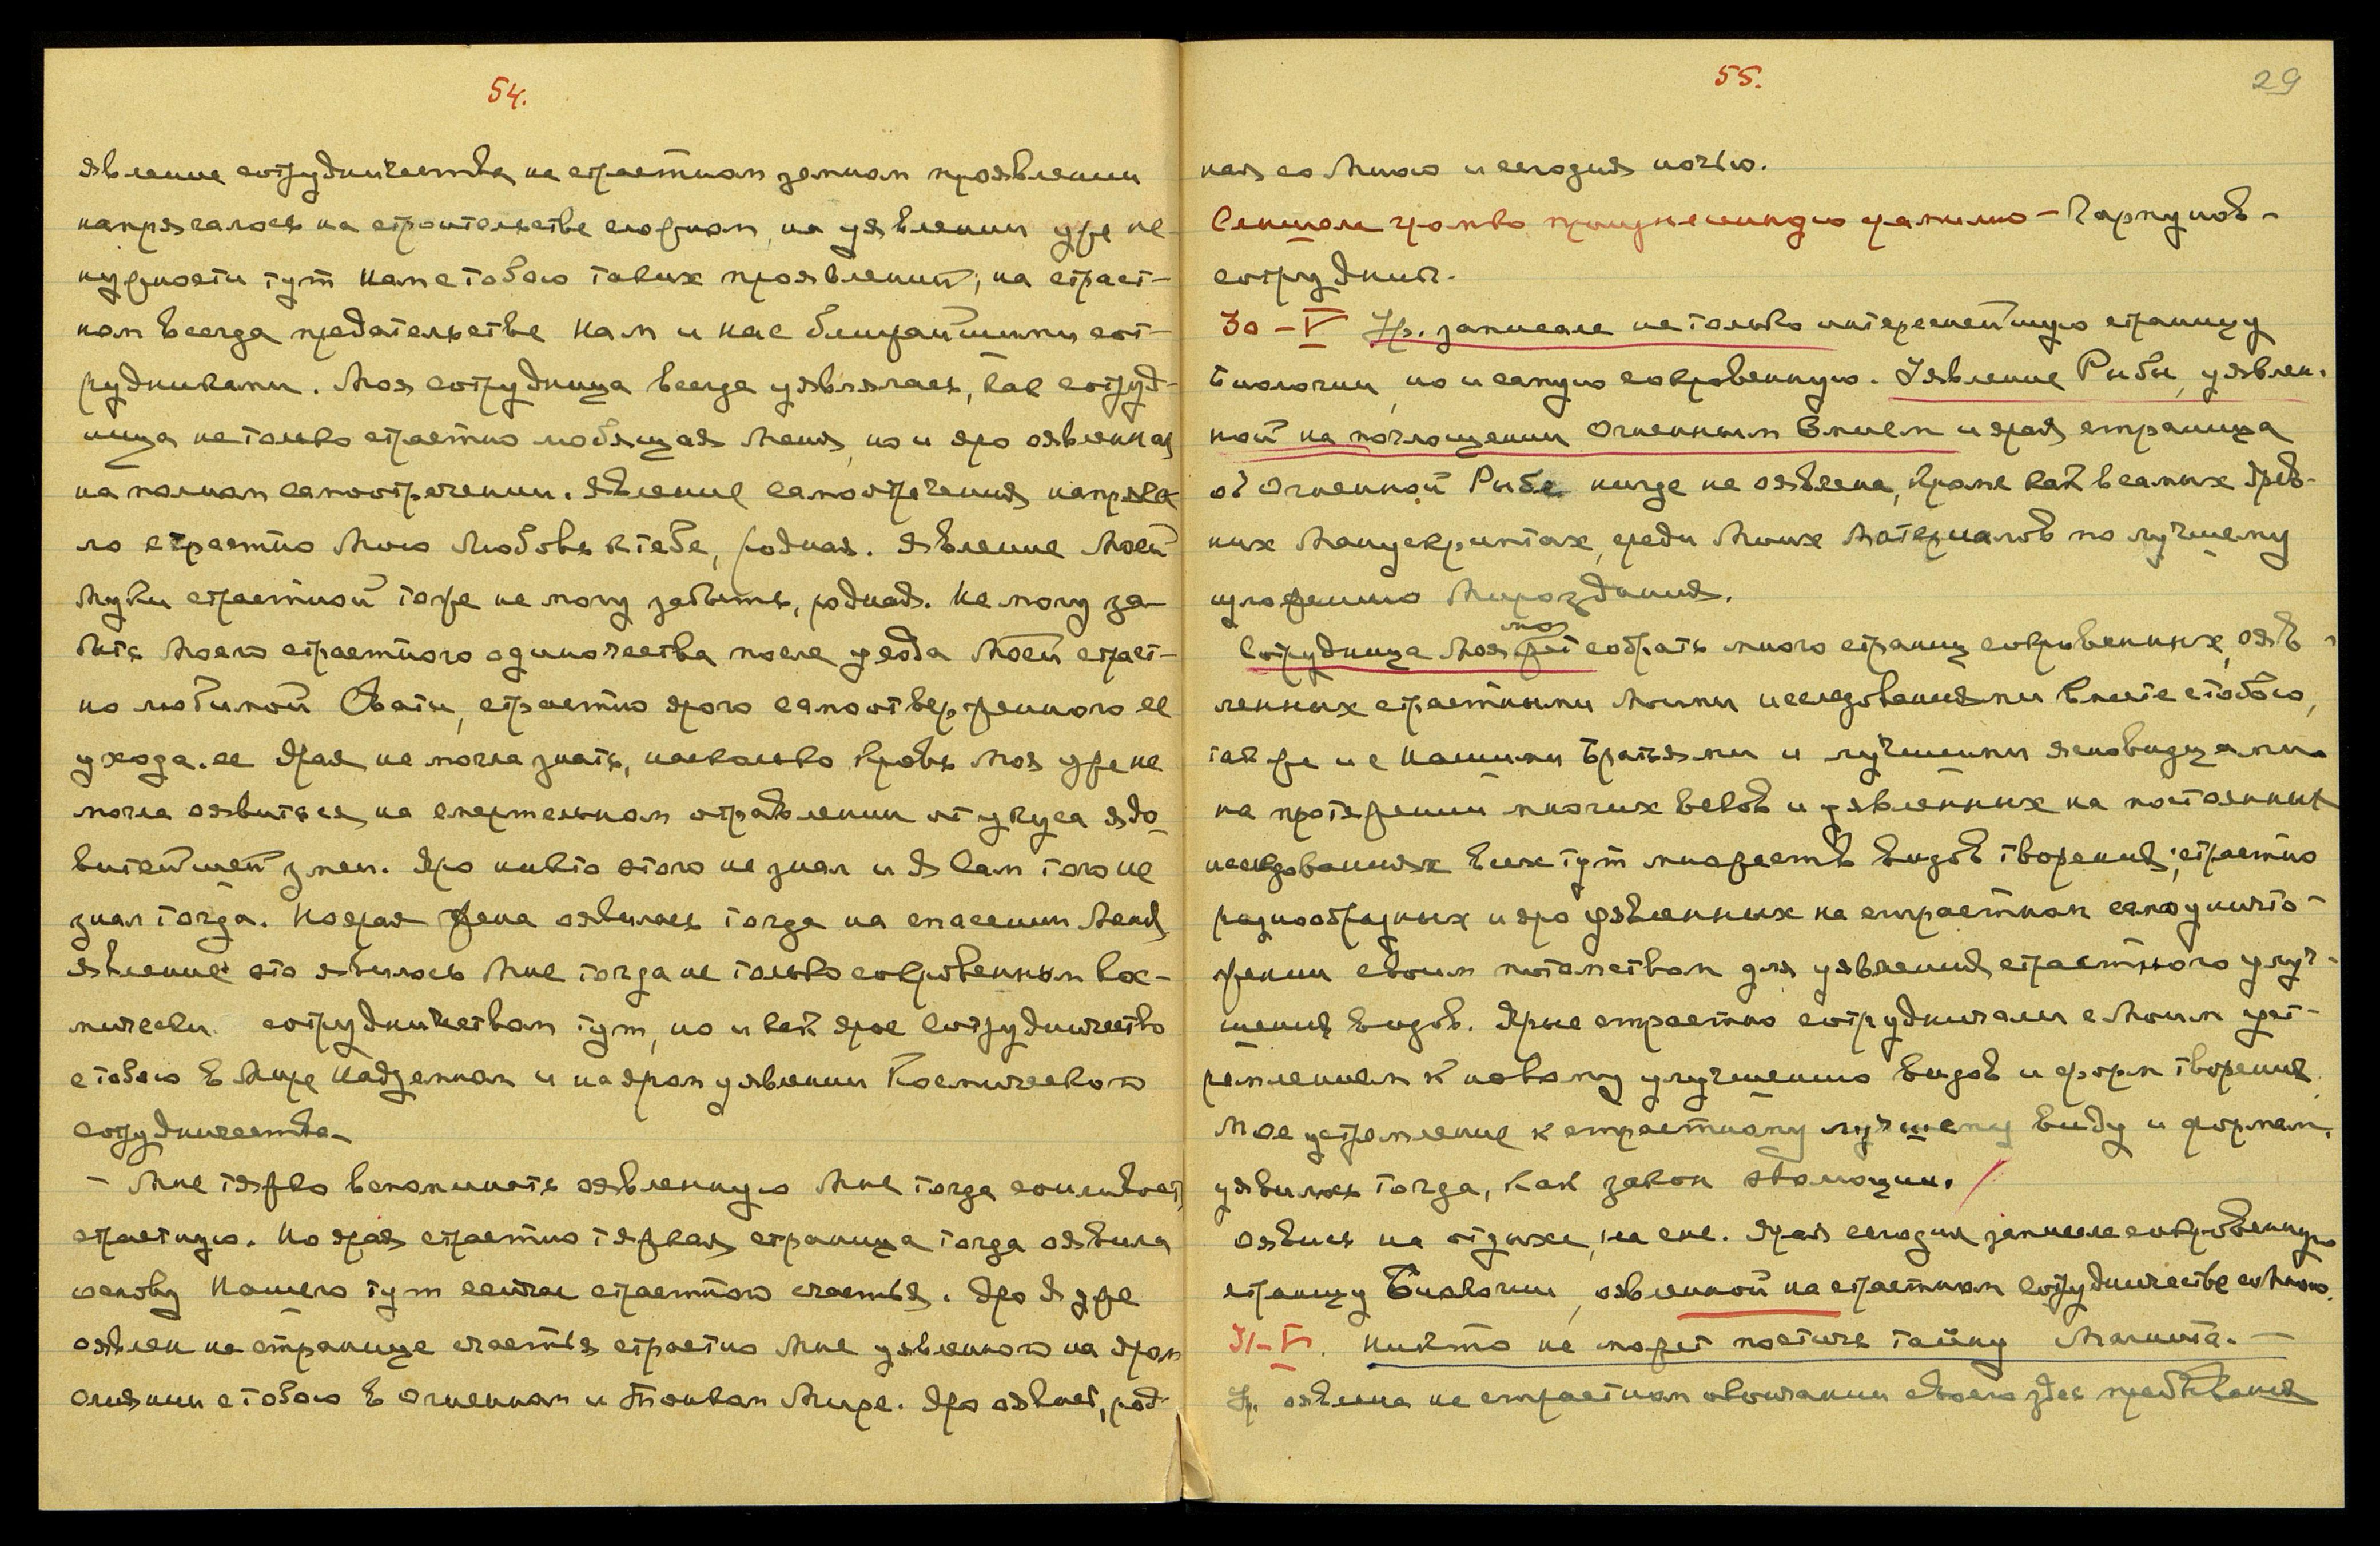 54.
явление сотрудничества на страстном земном проявлении
напрягалось на строительстве сложном, на уявлении уже не
нужности тут Нам с тобою таких проявлений; на страст-
ном всегда предательстве Нам и нас ближайшими сот-
рудниками. Моя сотрудница всегда уявлялась, как сотруд-
ница не только страстно любящая Меня, но и яро оявленная
на полном самоотречении. Явление самоотречения напрягало
страстно Мою Любовь к тебе, родная. Явление Моей
Муки страстной тоже не могу забыть, родная. Не могу за-
быть Моего страстного одиночества после ухода Моей страст-
но любимой Свати, страстно ярого самоотверженного ее
ухода. ее Ярая не могла знать, насколько Кровь Моя уже не
могла оявиться на смертельном отравлении от укуса ядо-
витейшей змеи. Яро никто этого не знал и Я Сам того не
знал тогда. Но ярая Жена оявилась тогда на спасении Меня
явление это явилось Мне тогда не только сокровенным Кос-
мически сотрудничеством тут, но и как ярое Сотрудничество
с тобою в Мире Надземном и на яром уявлении Космического
сотрудничества
– Мне тяжко вспоминать оявленную Мне тогда
страстную. Но ярая страстно тяжкая страница тогда оявила
основу Нашего тут сейчас страстного счастья. Яро Я уже
оявлен на странице счастья страстно Мне уявленного на яром
слиянии с тобою в Огненном и Тонком Мире. Яро род-
55.
29
ная со Мною и сегодня ночью.
Слышала громко произнесенную фамилию – Чарпунов –
сотрудник.
30 – V Ур. записала не только интереснейшую страницу
Биологии, но и самую сокровенную. Уявление Рыбы, уявлен-
ной на поглощении Огненным Змием и ярая страница
об Огненной Рыбе нигде не оявлена, кроме как в самых Древ-
них Манускриптах, среди Моих Материалов по лучшему
сложению Мироздания.
Сотрудница Моя может собрать много страниц сокровенных, ояв-
ленных страстными Моими исследованиями вместе с тобою,
так же и с Нашими Братьями и лучшими ясновидцами
на протяжении многих веков и уявленных на постоянных
исследованиях всех тут множеств видов творения; страстно
разнообразных и яро уявленных на страстном самоуничто-
жении своим потомством для уявления страстного улуч-
шения видов. Ярые страстно сотрудничали с Моим уст-
ремлением к новому улучшению видов и форм творения.
Мое устремление к страстному лучшему виду и формам,
уявилось тогда, как закон эволюции.
Оявись на отдыхе, на сне. Ярая сегодня записала сокровенную
страницу Биологии, оявленной на страстном Сотрудничестве со Мною.
31–V. Никто не может постичь тайну Магнита. –
Ур. оявлена на страстном окончании своего здесь пребывания